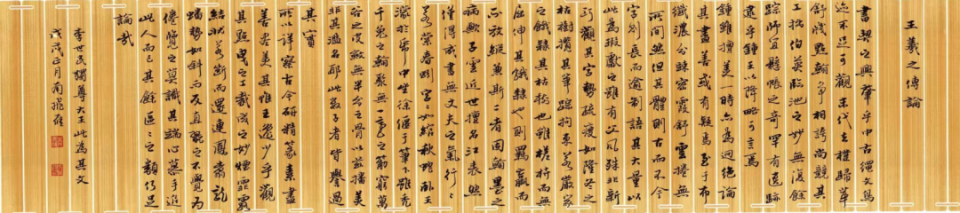 王羲之傳論
書契之興肇乎中古繩文鳥
迹不足可觀末代去樸歸華
舒牋點翰爭相誇尚競其
工拙伯英臨池之妙無復餘
蹤師宜懸帳之奇罕有遺跡
逮乎鍾王以降略可言焉
鍾雖擅美一時亦為迥絕論
其盡善或有所疑至於布
纖濃分疎密霞舒雲卷無
所間然但其體則古而不今
字則長而逾制語其大量以
此為瑕獻之雖有父風殊非新
巧觀其字勢疎瘦如隆冬之
枯樹攬其筆蹤拘束若嚴家
之餓隸其枯樹也雖槎枿而無
屈伸其餓隸也則羈羸而
不放縱兼斯二者固翰墨之
病歟子雲近世擅名江表然
僅得成書無丈夫之氣行行
若縈春蚓字字如綰秋蛇臥王
濛於紙中坐徐偃於筆下雖禿
千兔之翰聚無一毫之筋窮萬
谷之皮斂無半分之骨以茲播美
非其濫名邪此數子者皆譽過
其實
所以詳察古今研精篆素盡
善盡美其惟王逸少乎觀
其點曳之工裁成之妙煙霏露
結狀若斷而還連鳳翥龍
蟠勢如斜而反直翫之不覺為
倦覽之莫識其端心慕手追
此人而已其餘區區之類何足
論哉
李世民謂尊大王此為其文
戊戌正月